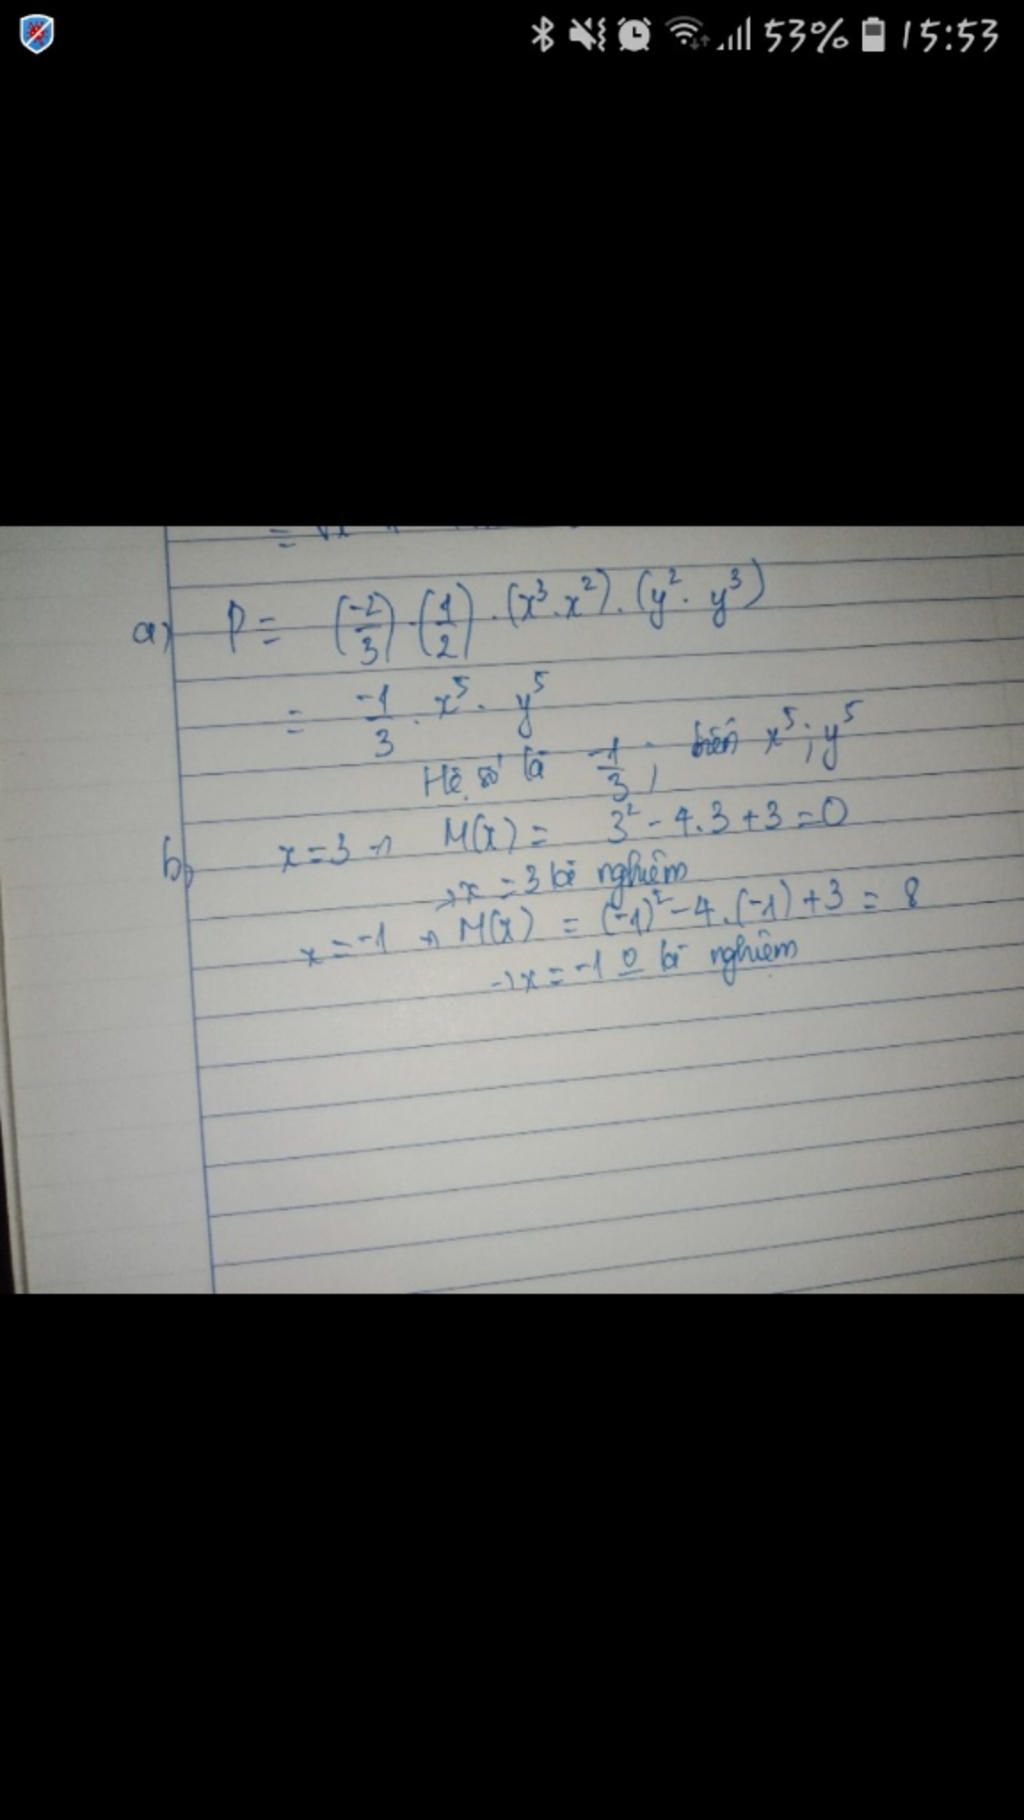 53% 15:53
a) P = (-2/3) . (1/2) . (x³ . x²) . (y² . y³)
= -1/3 . x⁵ . y⁵
Hệ số là -1/3 ; biến x⁵ ; y⁵
b) x = 3 → M(x) = 3² - 4.3 + 3 = 0
→ x = 3 là nghiệm
x = -1 → M(x) = (-1)² - 4.(-1) + 3 = 8
→ x = -1 o là nghiệm